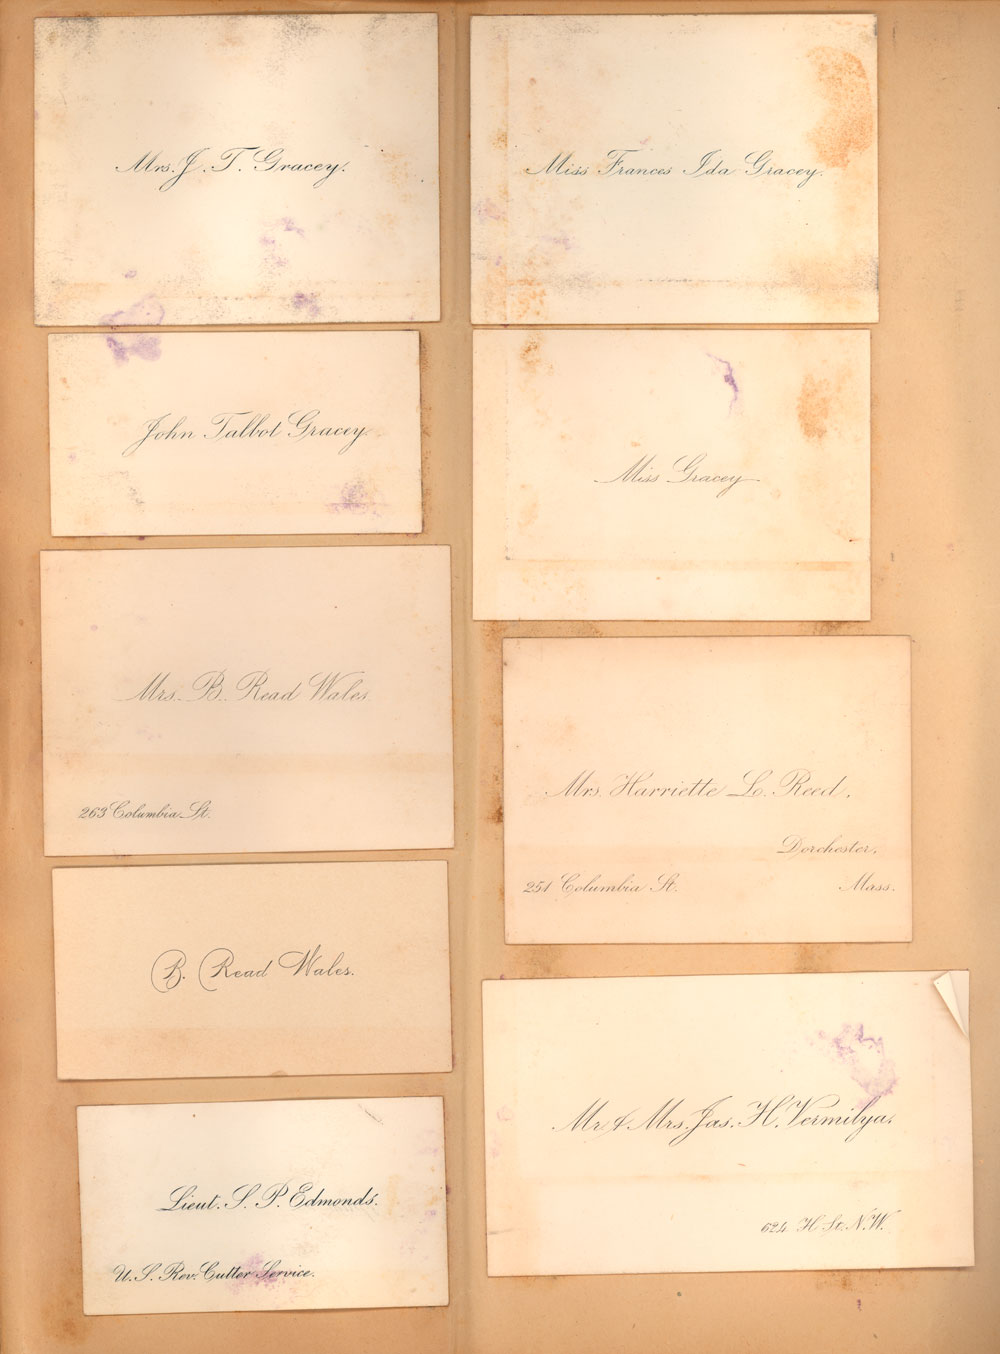 Mrs. J. T. Gracey.
Miss Frances Ida Gracey.
John Talbot Gracey.
Miss Gracey
Mrs. B. Read Wales
263 Columbia St.
Mrs. Harriette L. Reed.
Dorchester,
251 Columbia St. Mass.
B. Read Wales.
Mr. & Mrs. Jas. H. Vermilya.
624 H St. N.W.
Lieut. S. P. Edmonds.
U. S. Rev. Cutter Service.